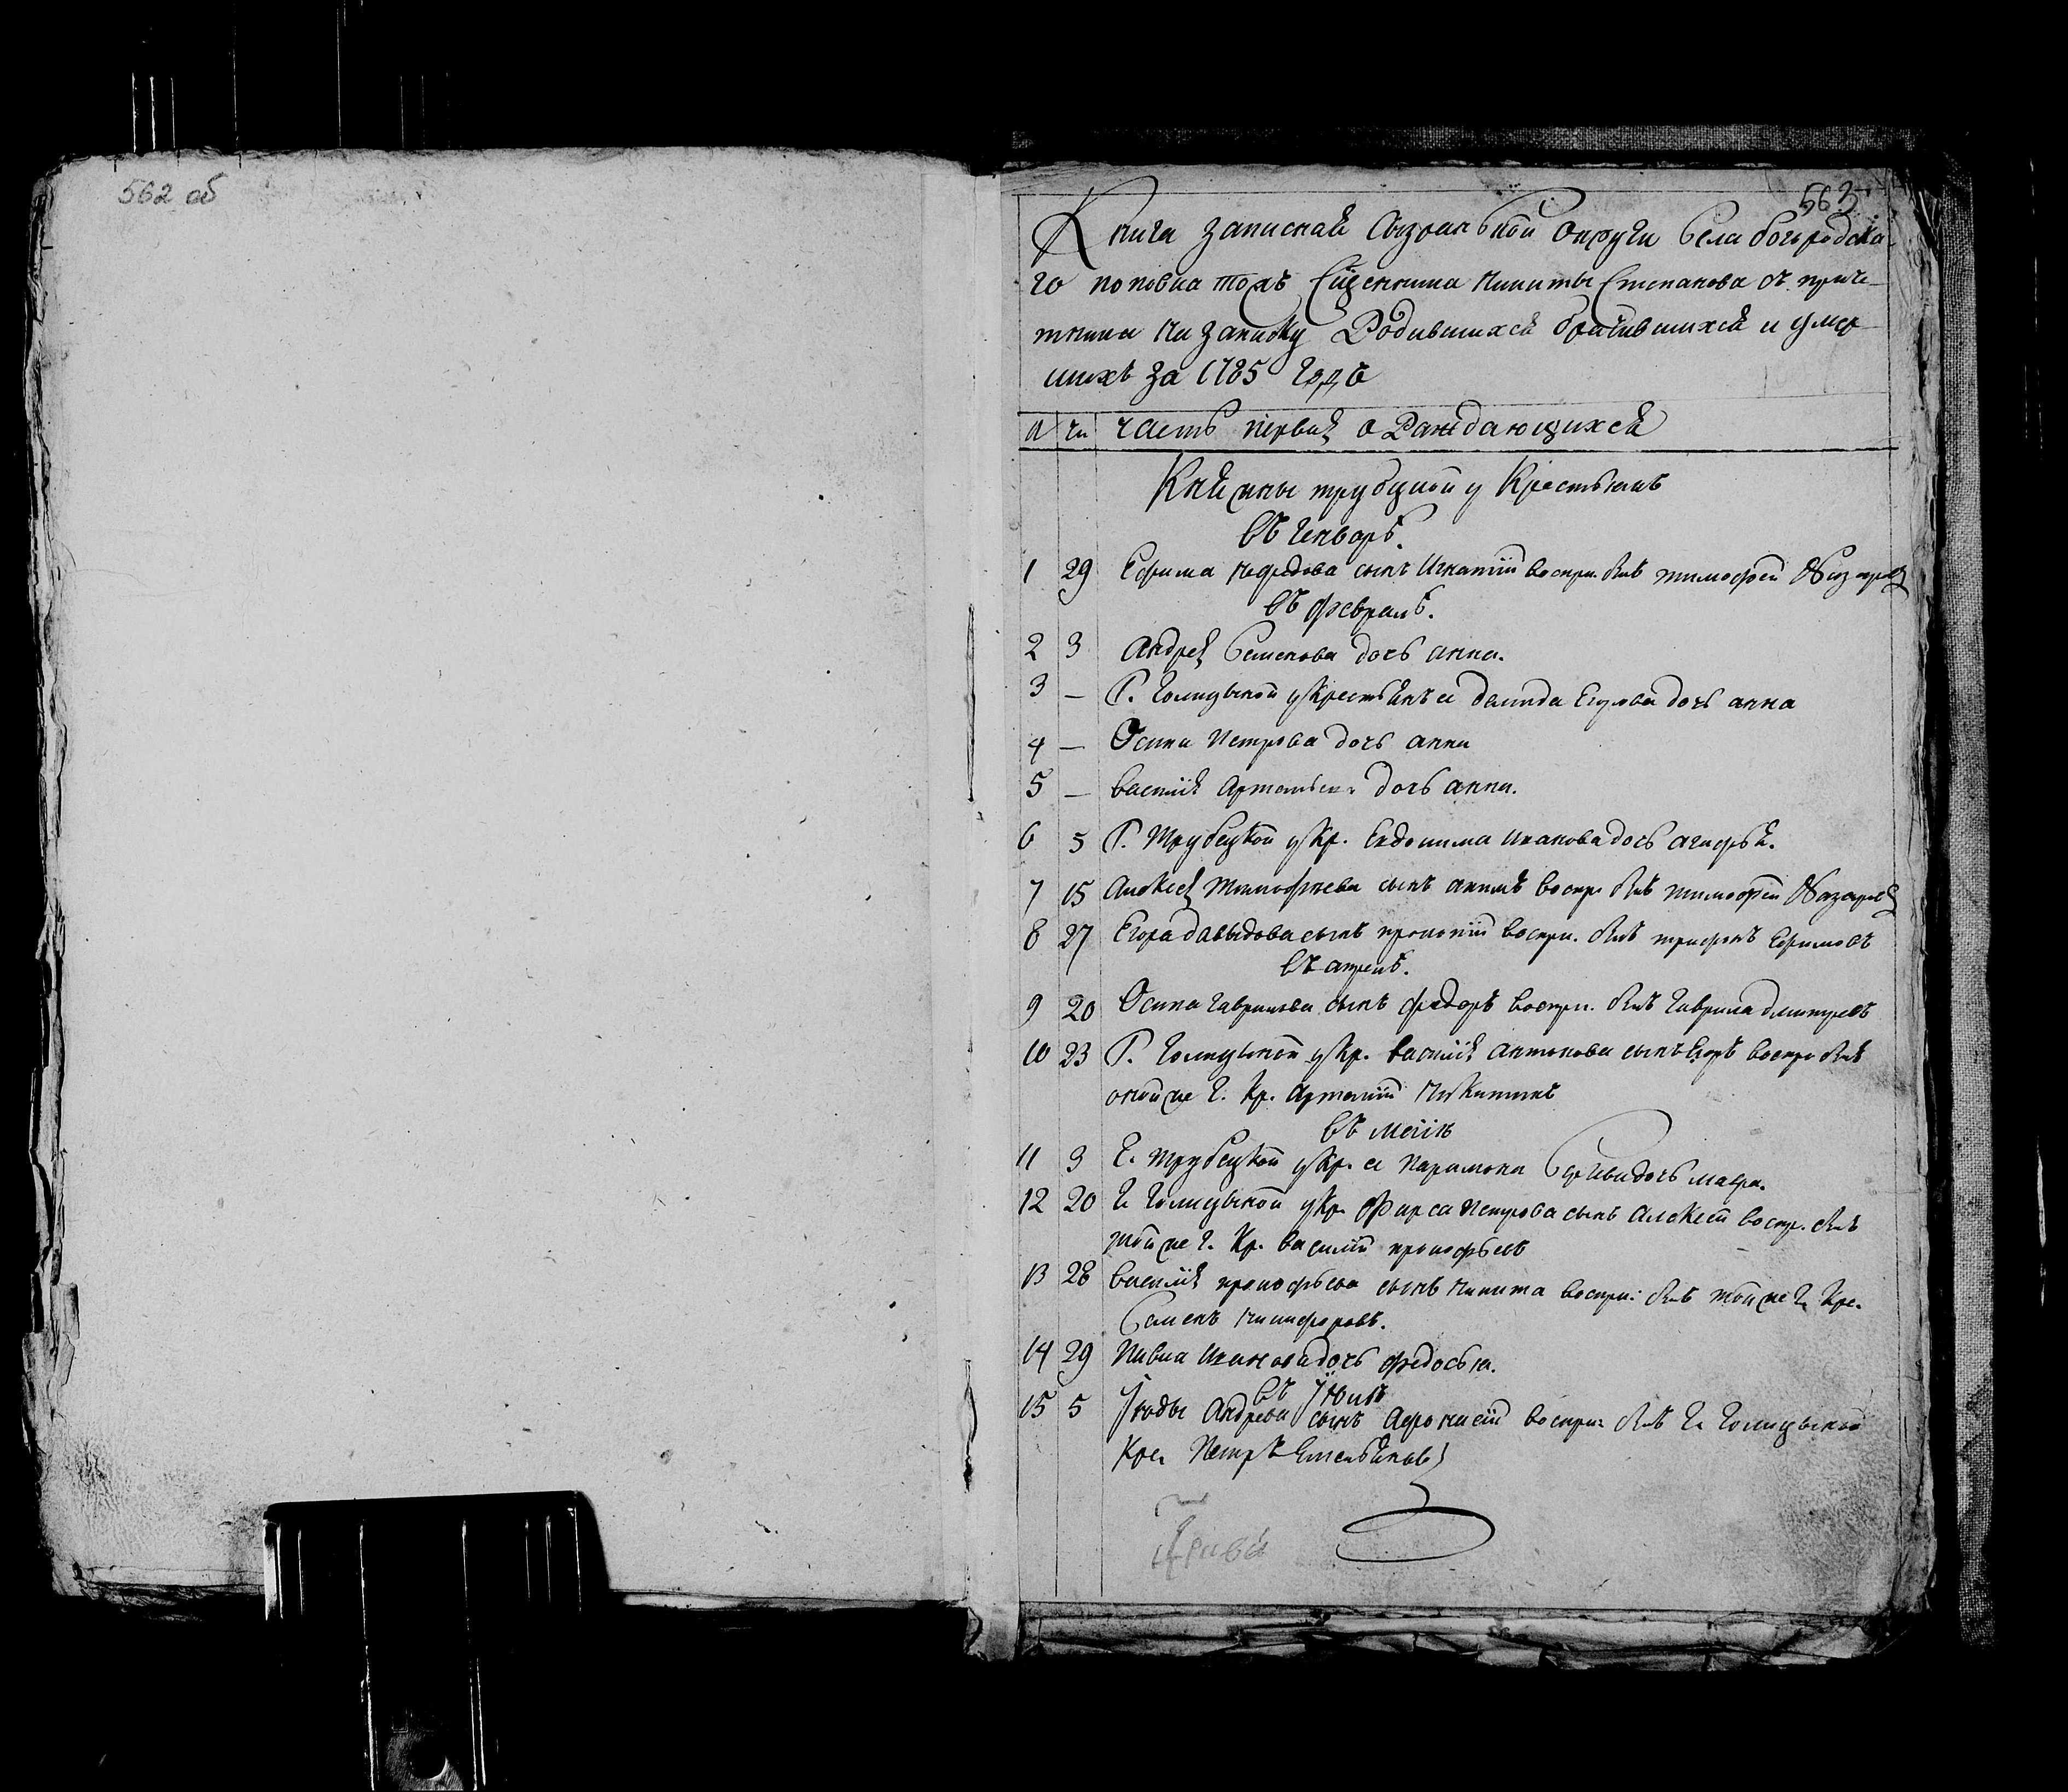 562 об
563
Книга записная Сызранской округи села богородска-
го поповка тожъ Сщенника Никиты Степанова съ приче-
тники на записку Родившихся брачившихся и умер-
шихъ за 1785 годъ
чи часть первая о Раждающихся
Княжны трубецкой у Крестьянъ
въ генваръ.
1 29 Ефима нефедова сынъ Игнатiй воспри. былъ тимофей Назаревъ
въ февралѣ.
2 3 Андрея Семенова дочь анна.
3 — Г. Голицыной у крестьянъ данила Егорова дочь анна
4 — Осипа Петрова дочь анна
5 — василiя Артемьева дочь анна.
6 5 Г. Трубецкой у кр. Евдокима Иванова дочь агафья.
7 15 Алексея Тимофеева сынъ акимъ воспр. былъ тимофей Назаревъ
8 27 Егора давыдова сынъ прокопiй воспри. былъ трифонъ Ефимовъ
въ апрелѣ.
9 20 Осипа гаврилова сынъ федоръ воспри. былъ гаврила дмитревъ
10 23 Г. Голицыной у кр. василiя антонова сынъ Егоръ воспри былъ
оной же г. кр. Артемiй Никитинъ
въ маiи
11 3 Г. трубецкой у кр. Парамона дочь мавра.
12 20 Г. Голицыной у кр. Фирса Петрова сынъ Алексей воспр. былъ
той же г. кр. василiй прокофьевъ
13 28 василiя прокофьева сынъ никита воспри: былъ той же г. кре.
Семенъ никифоровъ.
14 29 Павла Иванова дочь федосья.
въ Iюнѣ
15 5 Iюды Андреева сынъ Афонасiй воспри: былъ г. Голицыной
кре. Петръ Емельяновъ